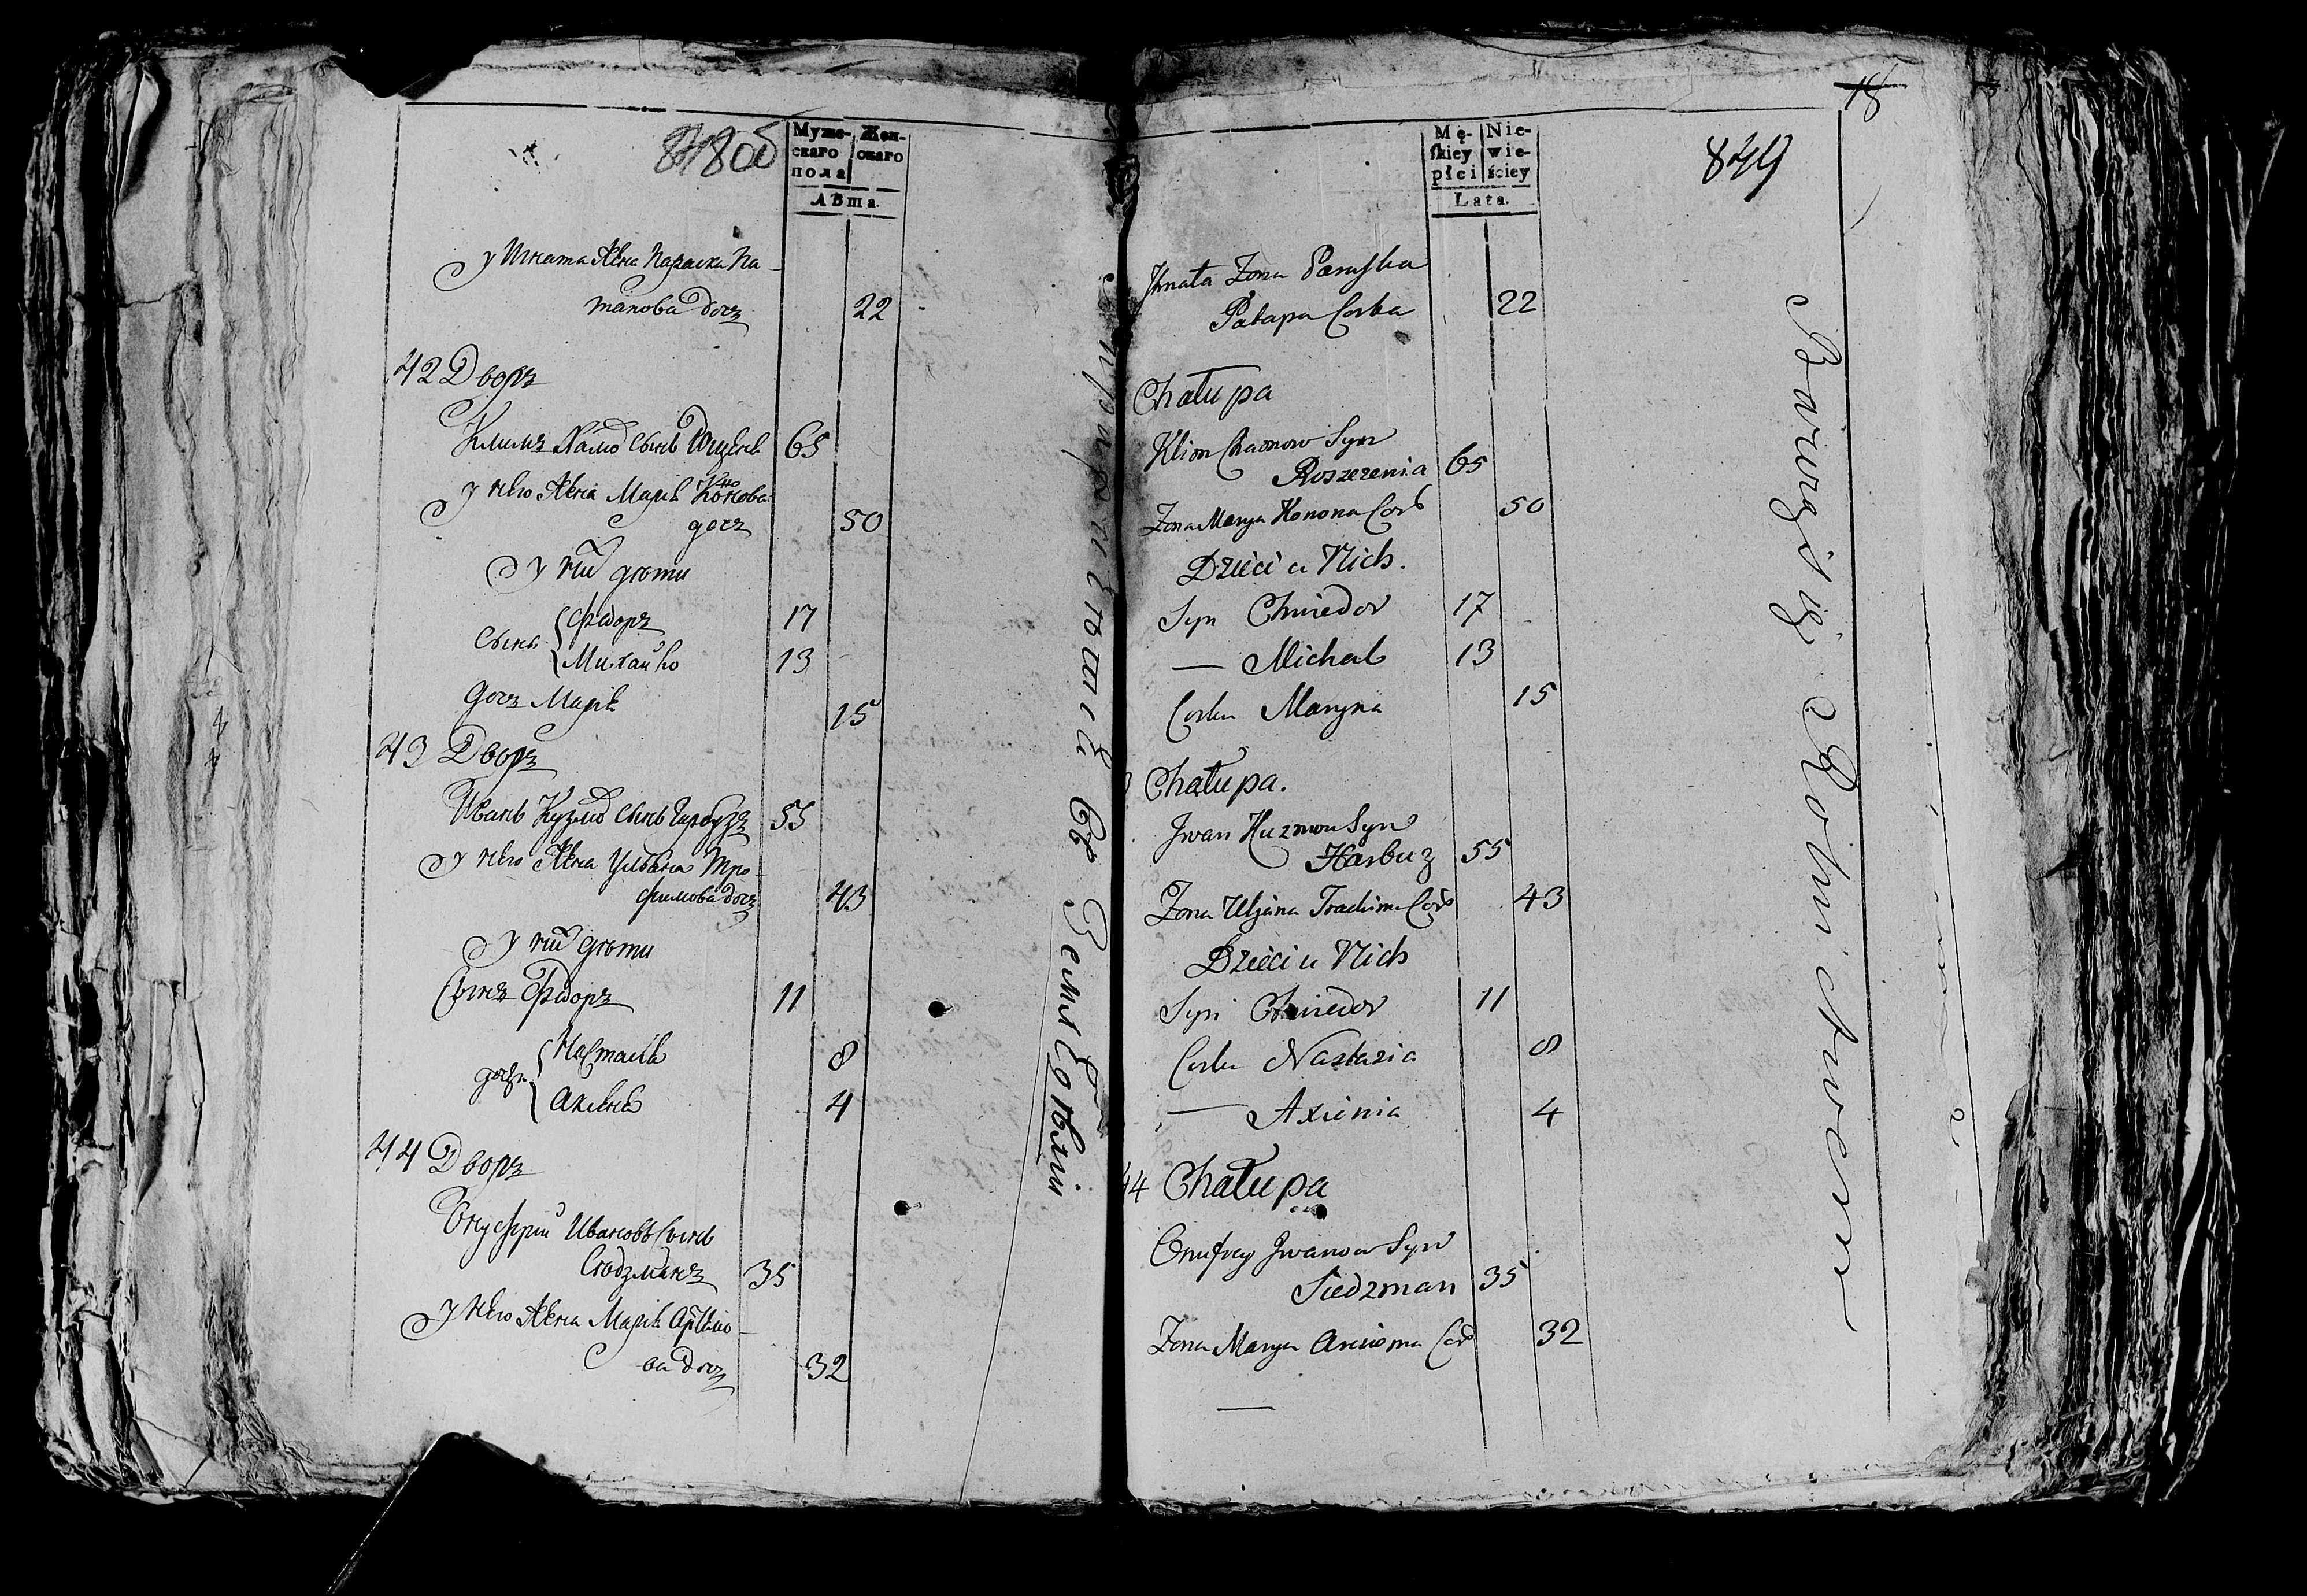 848об
Муже-
скаго
пола
Жен-
скаго
Лѣта.
у Игната Жена Параска По-
тапова дочъ 22
42 Дворъ
Климъ Хамов Сынъ 65
у него Жена Марія Коно
нова
дочъ 50
у них дѣти
Сыны Федоръ 17
Михайло 13
дочъ Марія 15
43 Дворъ
Иванъ Кузмов Сынъ Гарбузъ 55
у него Жена Ульяна Тро-
фимова дочъ 43
у них дѣти
Сынъ Федоръ 11
дочери Настасія 8
Аксенія 4
44 Дворъ
Онуфрий Ивановъ Сынъ
Сѣдзманъ 35
у него Жена Марія Артiмо-
ва дочъ 32
въ Землѣдѣліи
18
849
Mę-
skiey
płci
Nie-
wie-
ściey
Lata.
Ihnata Zona Paraska
Patapa Corka 22
Chałupa
Klim Chamow Syn
Roszczenia 65
Zona Marya Konona Cork 50
Dzieci u Nich.
Syn Chwiedor 17
— Michał 13
Corka Maryna 15
Chałupa.
Jwan Kuzmow Syn
Harbuz 55
Zona Uljana Trachima Cor 43
Dzieci u Nich
Syn Chwiedor 11
Corka Nastazia 8
— Axienia 4
44 Chałupa
Onufrey Jwanow Syn
Siedzman 35
Zona Marya Arcioma Cor 32
Bawią się Rolnictwem